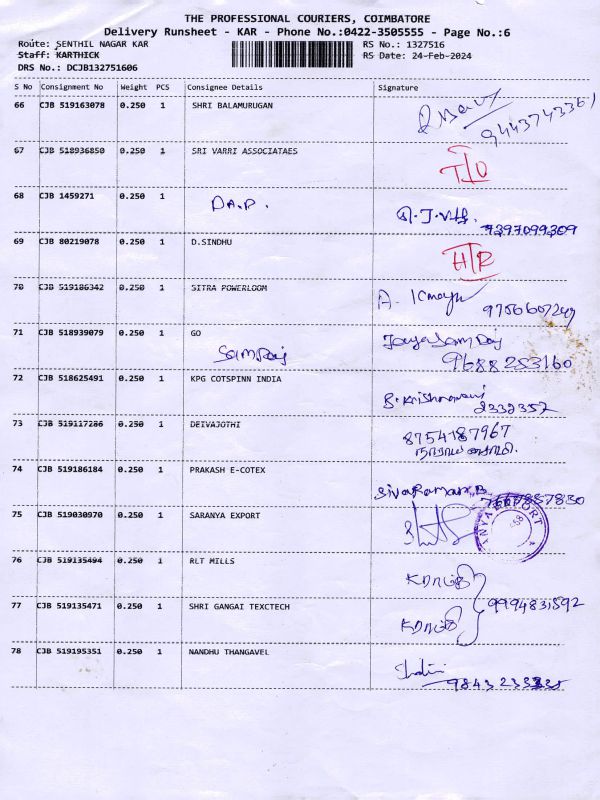 THE PROFESSIONAL COURIERS, COIMBATORE
Delivery Runsheet - KAR - Phone No.:0422-3505555 - Page No.:6
Route: SENTHIL NAGAR KAR
RS No.: 1327516
Staff: KARTHICK
RS Date: 24-Feb-2024
DRS No.: DCJB132751606
S No Consignment No Weight PCS Consignee Details Signature
66 CJB 519163078 0.250 1 SHRI BALAMURUGAN
9443743361
67 CJB 518936850 0.250 1 SRI VARRI ASSOCIATAES
68 CJB 1459271 0.250 1
9397099309
69 CJB 80219078 0.250 1 D.SINDHU
70 CJB 519186342 0.250 1 SITRA POWERLOOM
A.
71 CJB 518939079 0.250 1 GO
9688253160
72 CJB 518625491 0.250 1 KPG COTSPINN INDIA
2332357
73 CJB 519117286 0.250 1 DEIVAJOTHI
8754187967
74 CJB 519186184 0.250 1 PRAKASH E-COTEX
SivaRaman.B
75 CJB 519030970 0.250 1 SARANYA EXPORT
76 CJB 519135494 0.250 1 RLT MILLS
77 CJB 519135471 0.250 1 SHRI GANGAI TEXCTECH
9994831592
78 CJB 519195351 0.250 1 NANDHU THANGAVEL